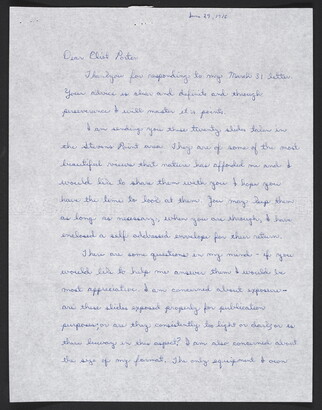 Dear Eliot Porter
Thankyou for responding to my March 31 letter.
Your advice is clear and definite and through
perseverance I will master it's points.
I am sending you these twenty slides taken in
the Stevens Point area. They are of some of the most
beautiful views that nature has afforded me and I
would like to share them with you. I hope you
have the time to look at them. You may keep them
as long as necessary, when you are through, I have
enclosed a self-addressed envelope for their return.
There are some questions in my mind - if you
would like to help me answer them I would be
most appreciative. I am concerned about exposure -
are these slides exposed properly for publication
purposes; or are they consistently to light or dark; or is
there leeway in this aspect? I am also concerned about
the size of my format. The only equipment I own